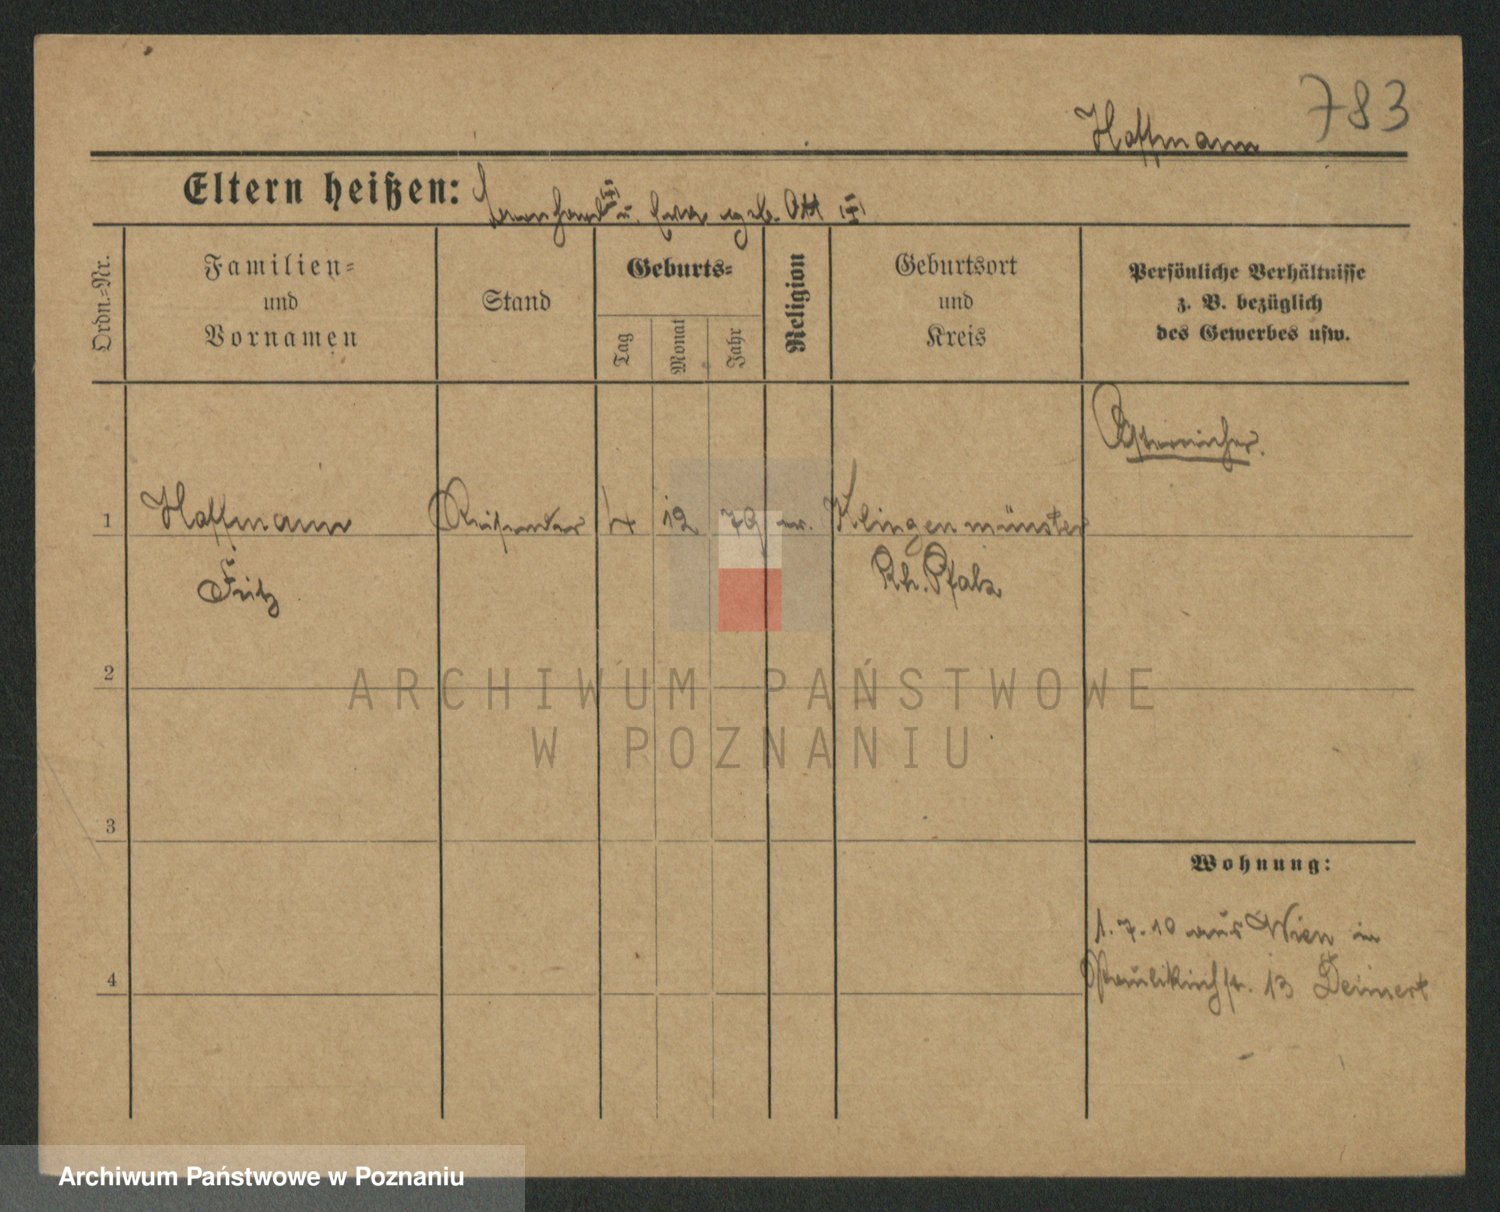 783
Hoffmann
Eltern heißen: u. Eva geb. Ott
Ordn.-Nr.
Familien-
und
Vornamen
Stand
Geburts-
Tag
Monat
Jahr
Religion
Geburtsort
und
Kreis
Persönliche Verhältnisse
z. B. bezüglich
des Gewerbes usw.
Österreicher.
1 Hoffmann Reisender 4 12 79 ev. Klingenmünster
Fritz Rh. Pfalz
2
ARCHIWUM PAŃSTWOWE
W POZNANIU
3
Wohnung:
1.7.10 aus Wien in
4 Paulikirchstr. 13 Deinert
Archiwum Państwowe w Poznaniu